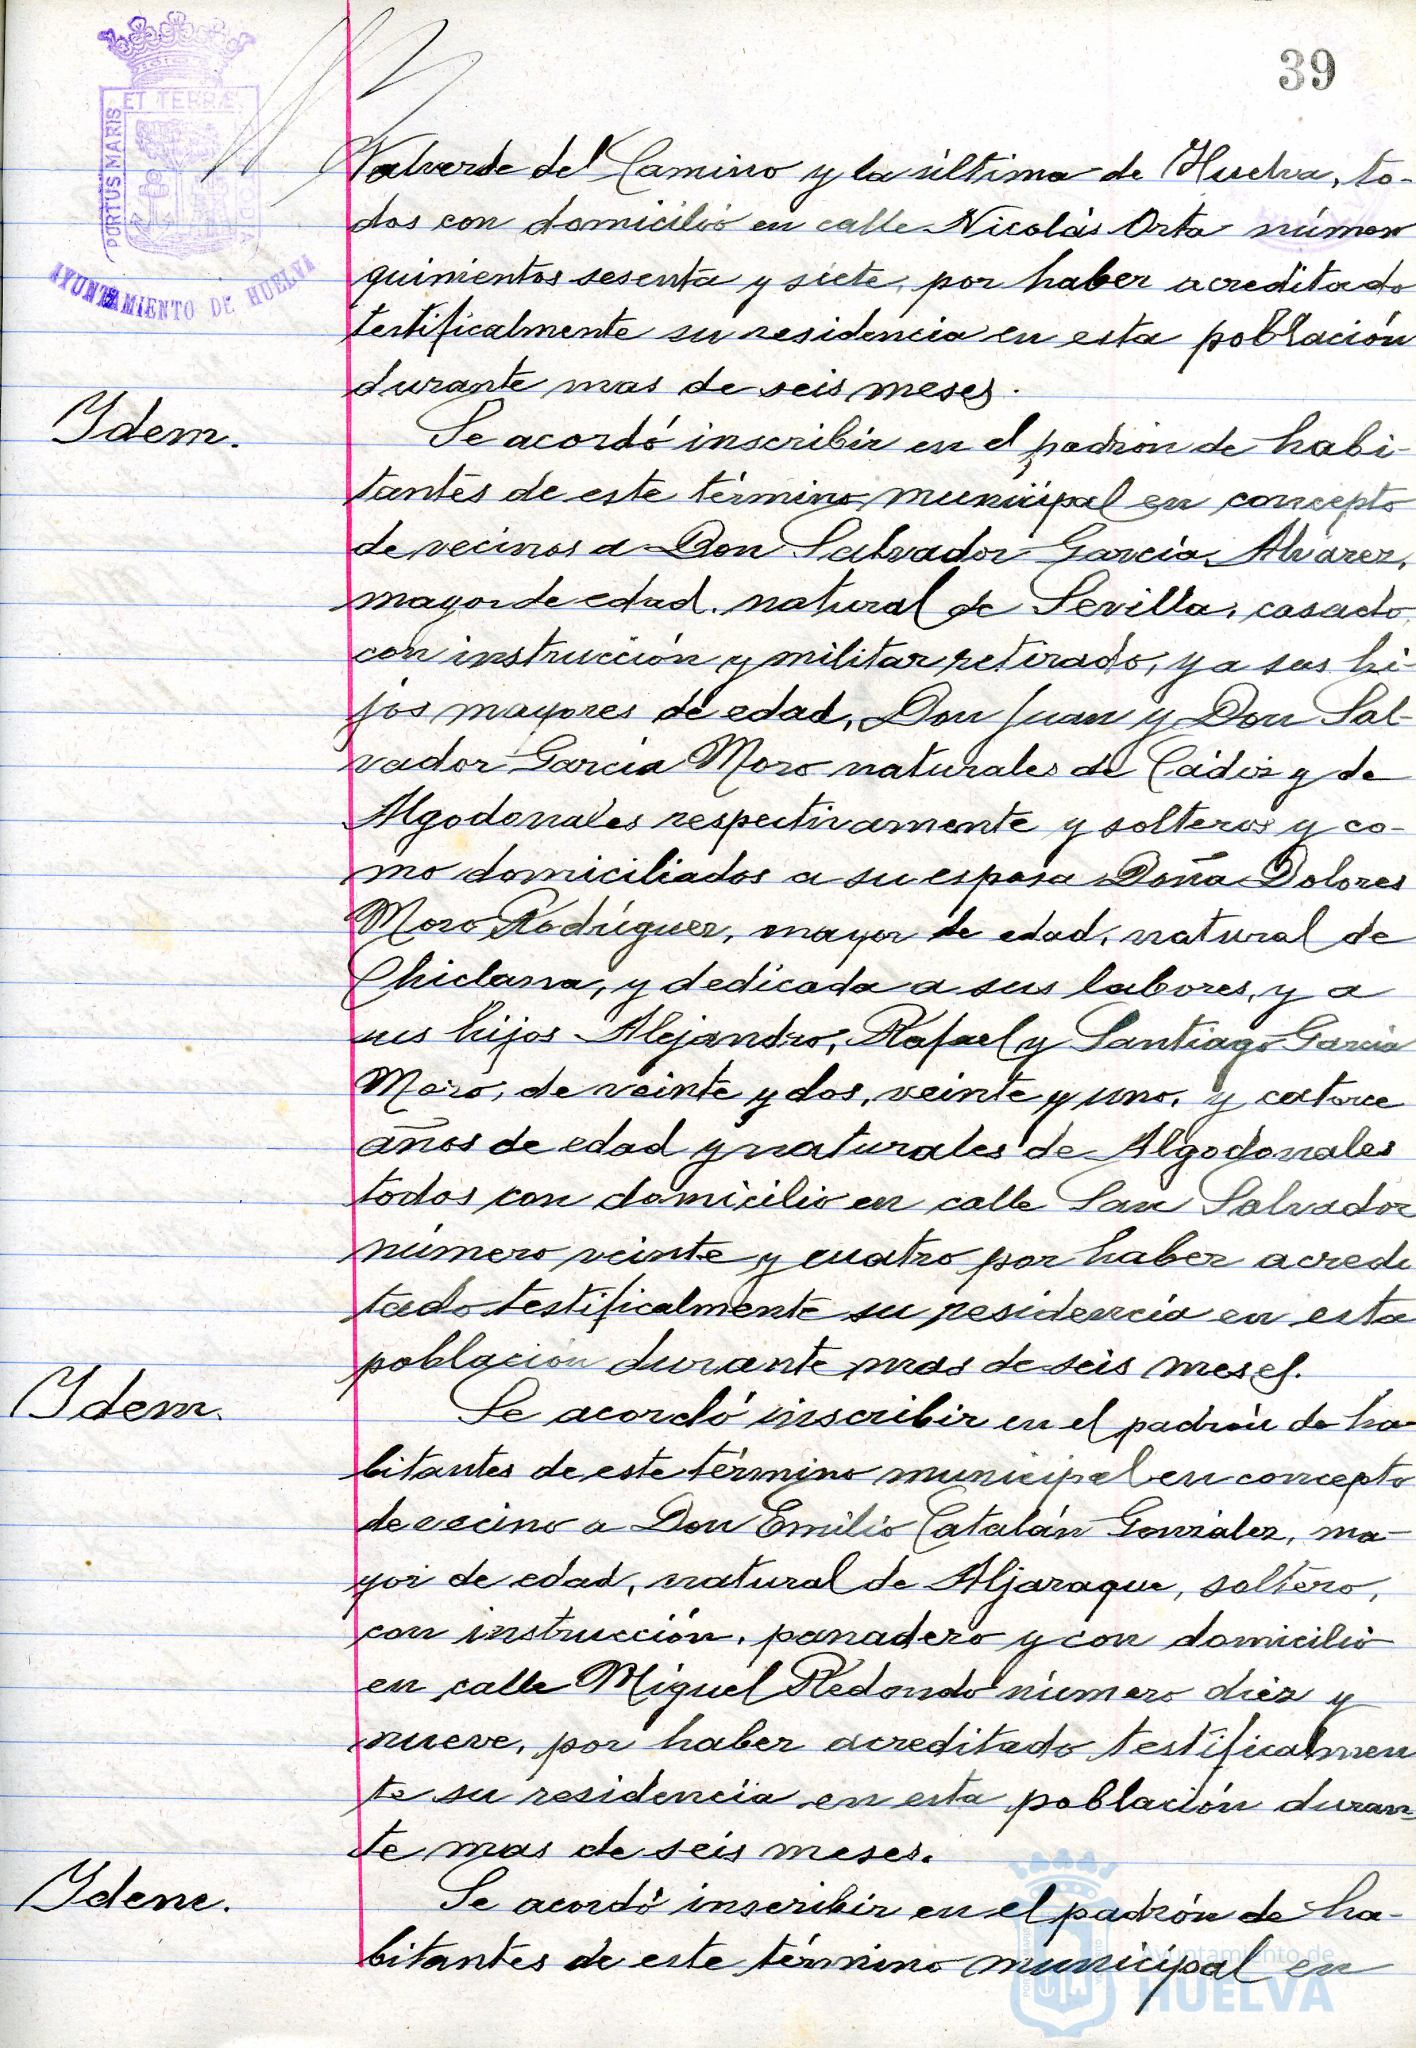 39
PORTUS MARIS ET TERRÆ CUSTODIA
AYUNTAMIENTO DE HUELVA
Valverde del Camino y la última de Huelva, to-
dos con domicilio en calle Nicolás Orta número
quinientos sesenta y siete, por haber acreditado
testificalmente su residencia en esta población
durante mas de seis meses.
Idem.
Se acordó inscribir en el padrón de habi-
tantes de este término municipal en concepto
de vecinos a Don Salvador García Alvarez,
mayor de edad, natural de Sevilla, casado,
con instrucción y militar retirado, y a sus hi-
jos mayores de edad, Don Juan y Don Sal-
vador García Moro naturales de Cádiz y de
Algodonales respectivamente y solteros y co-
mo domiciliados a su esposa Doña Dolores
Moro Rodríguez, mayor de edad, natural de
Chiclana, y dedicada a sus labores, y a
sus hijos Alejandro, Rafael y Santiago García
Moro, de veinte y dos, veinte y uno, y catorce
años de edad y naturales de Algodonales
todos con domicilio en calle San Salvador
número veinte y cuatro por haber acredi
tado testificalmente su residencia en esta
población durante mas de seis meses.
Idem.
Se acordó inscribir en el padrón de ha-
bitantes de este término municipal en concepto
de vecino a Don Emilio Catalán González, ma-
yor de edad, natural de Aljaraque, soltero,
con instrucción, panadero y con domicilio
en calle Miguel Redondo número diez y
nueve, por haber acreditado testificalmen
te su residencia en esta población duran-
te mas de seis meses.
Idem.
Se acordó inscribir en el padrón de ha-
bitantes de este término municipal en
Ayuntamiento de
HUELVA